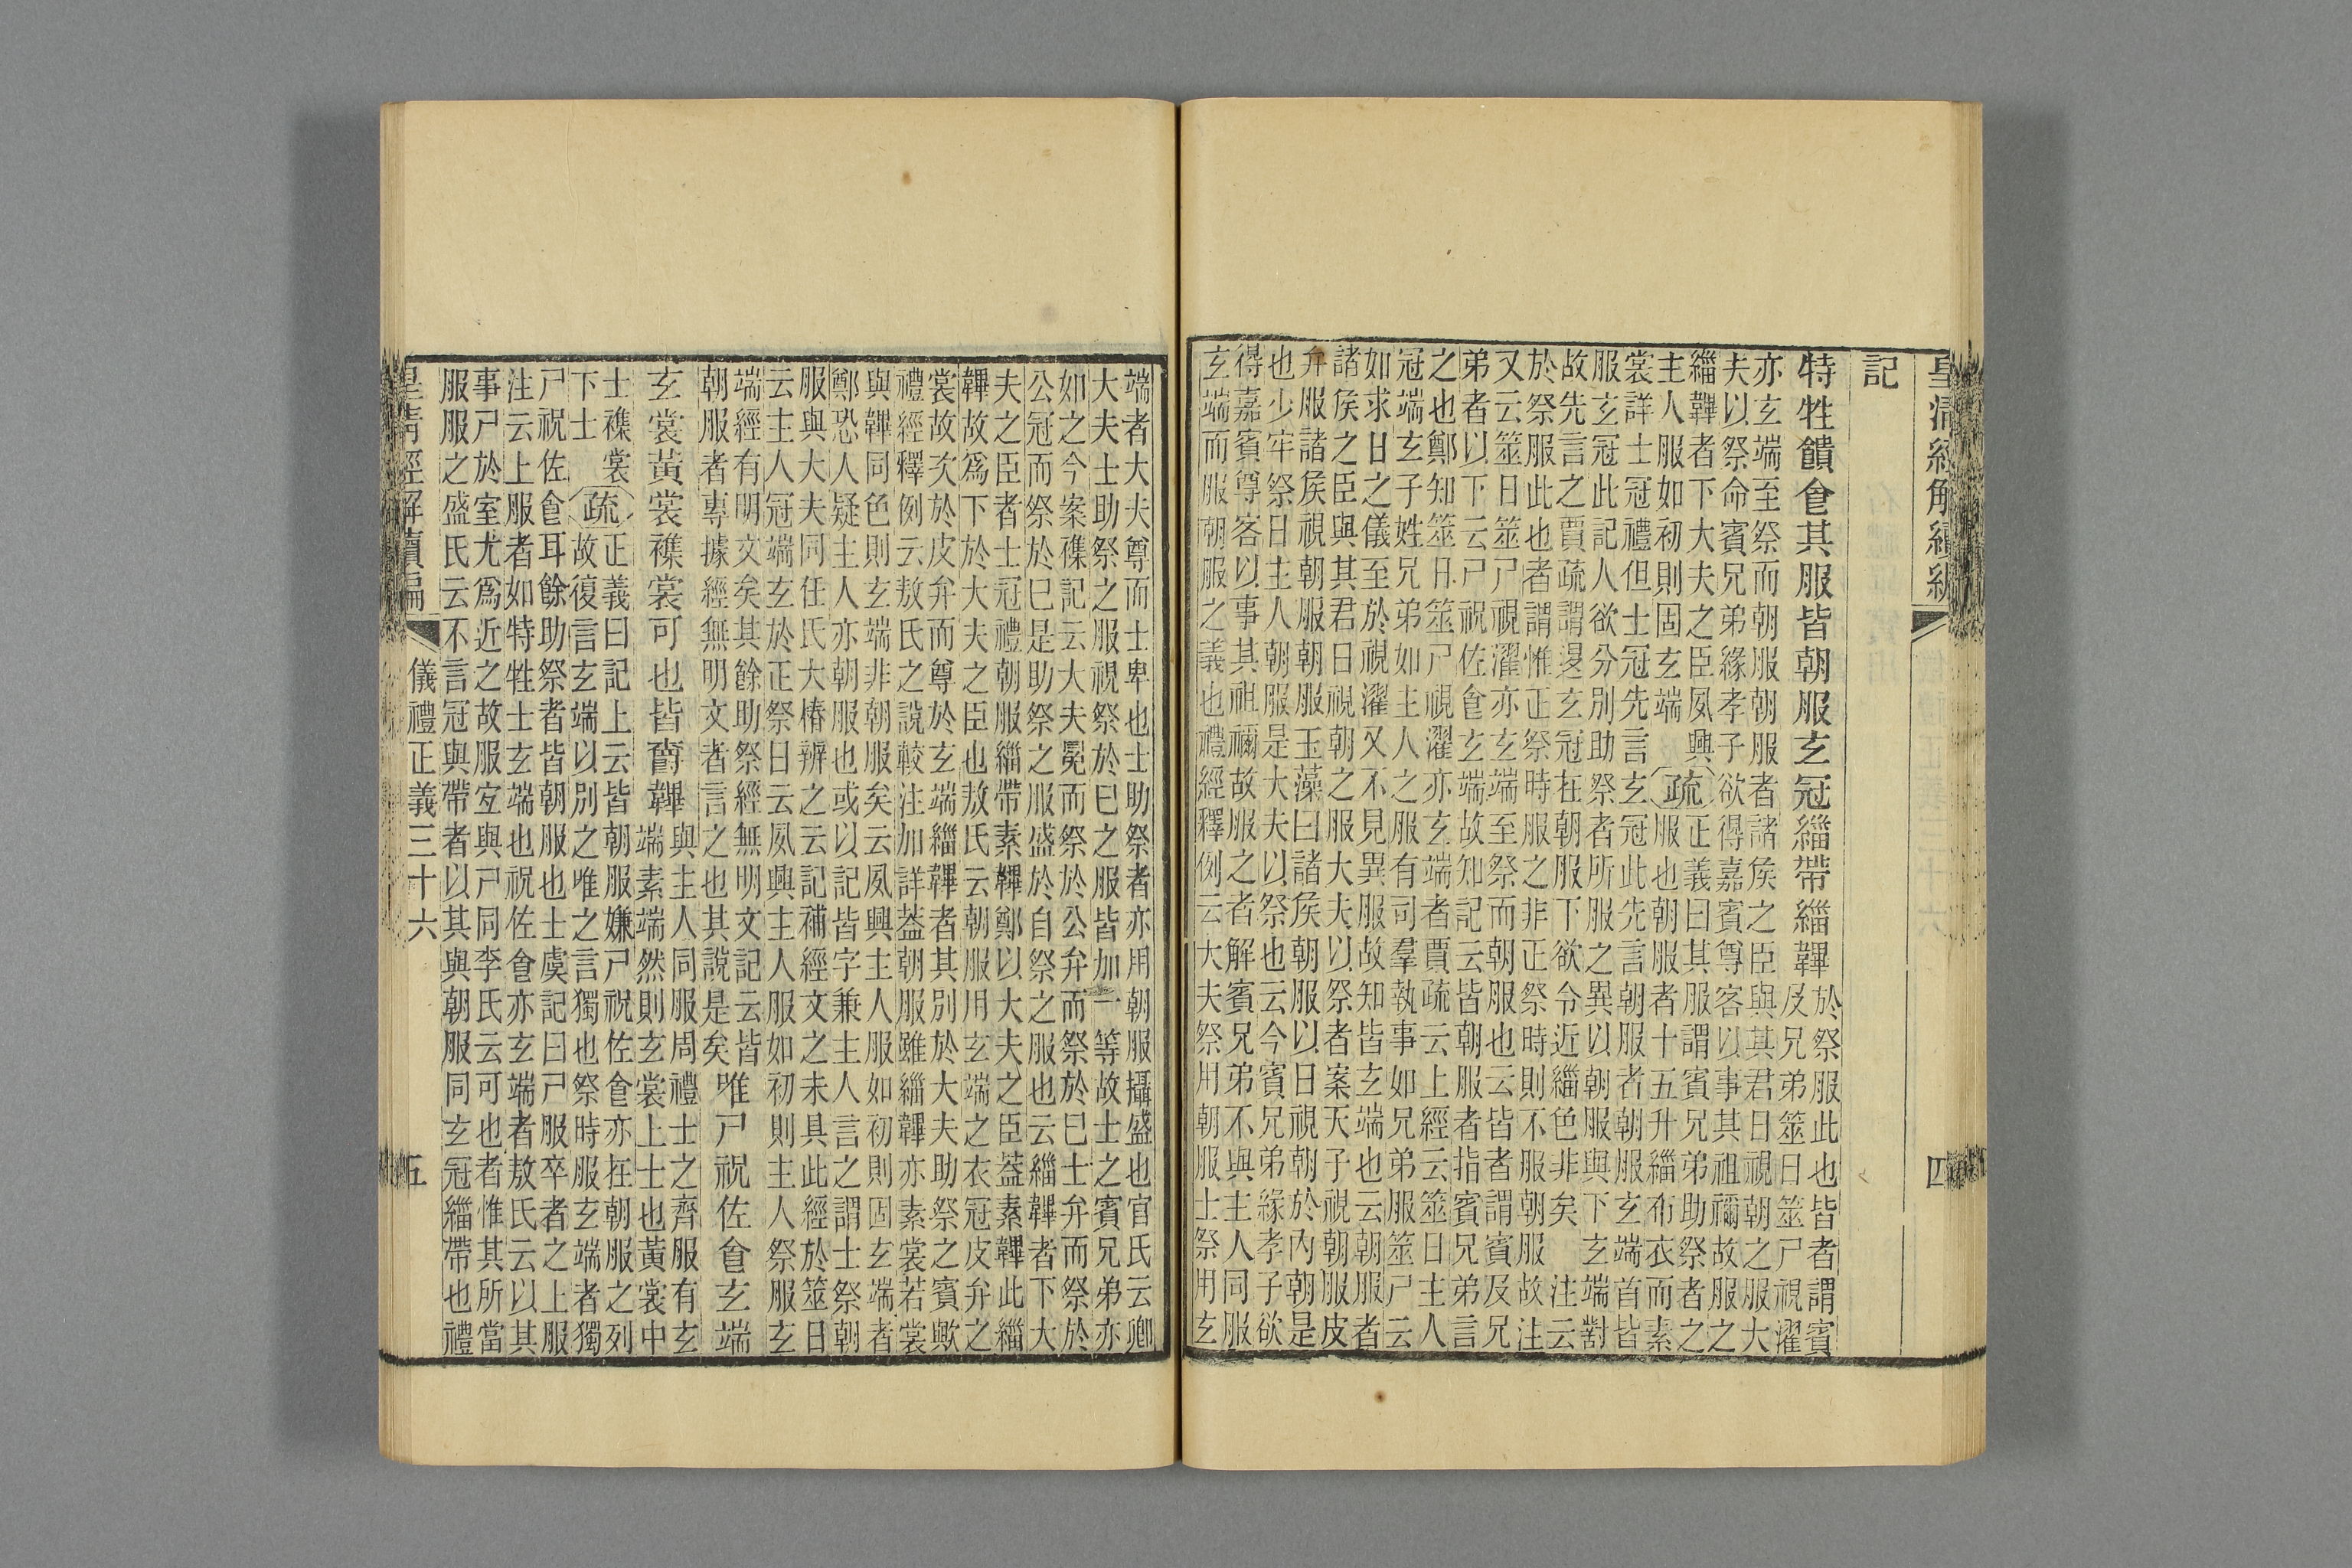 皇清經解續編
四
記
特牲饋食其服皆朝服玄冠緇帶緇韠
於祭服此也皆者謂賓
及兄弟筮日筮尸視濯
亦玄端至祭而朝服朝服者諸侯之臣與其君日視朝之服大
夫以祭今賓兄弟緣孝子欲得嘉賓尊客以事其祖禰故服之
緇韠者下大夫之臣夙興
主人服如初則固玄端
疏
正義曰其服謂賓兄弟助祭者之
服也朝服者十五升緇布衣而素
裳詳士冠禮但士冠先言玄冠此先言朝服者朝服玄端首皆
服玄冠此記人欲分別助祭者所服之異以朝服與下玄端對
故先言之賈疏謂退玄冠在朝服下欲令近緇色非矣 注云
於祭服此也者謂惟正祭時服之非正祭時則不服朝服故注
又云筮日筮尸視濯亦玄端至祭而朝服也云皆者謂賓及兄
弟者以下云尸祝佐食玄端故知記云皆朝服者指賓兄弟言
之也鄭知筮日筮尸視濯亦玄端者賈疏云上經云筮日主人
冠端玄子姓兄弟如主人之服有司羣執事如兄弟服筮尸云
如求日之儀至於視濯又不見異服故知皆玄端也云朝服者
諸侯之臣與其君日視朝之服大夫以祭者案天子視朝服皮
弁服諸侯視朝服朝服玉藻曰諸侯朝服以日視朝於內朝是
也少牢祭日主人朝服是大夫以祭也云今賓兄弟緣孝子欲
得嘉賓尊客以事其祖禰故服之者解賓兄弟不與主人同服
玄端而服朝服之義也禮經釋例云大夫祭用朝服士祭用玄
端者大夫尊而士卑也士助祭者亦用朝服攝盛也官氏云卿
大夫士助祭之服視祭於已之服皆加一等故士之賓兄弟亦
如之今案襍記云大夫冕而祭於公弁而祭於已士弁而祭於
公冠而祭於已是助祭之服盛於自祭之服也云緇韠者下大
夫之臣者士冠禮朝服緇帶素韠鄭以大夫之臣蓋素韠此緇
韠故爲下於大夫之臣也敖氏云朝服用玄端之衣冠皮弁之
裳故次於皮弁而尊於玄端緇韠者其別於大夫助祭之賓歟
禮經釋例云敖氏之說較注加詳蓋朝服雖緇韠亦素裳若裳
與韠同色則玄端非朝服矣云夙興主人服如初則固玄端者
鄭恐人疑主人亦朝服也或以記皆字兼主人言之謂士祭朝
服與大夫同任氏大椿辨之云記補經文之未具此經於筮日
云主人冠端玄於正祭日云夙興主人服如初則主人祭服玄
端經有明文矣其餘助祭經無明文記云皆
朝服者專據經無明文者言之也其說是矣
唯尸祝佐食玄端
玄裳黃裳襍裳可也皆爵韠
與主人同服周禮士之齊服有玄
端素端然則玄裳上士也黃裳中
士襍裳
下士
疏
正義曰記上云皆朝服嫌尸祝佐食亦在朝服之列
故復言玄端以別之唯之言獨也祭時服玄端者獨
尸祝佐食耳餘助祭者皆朝服也士虞記曰尸服卒者之上服
注云上服者如特牲士玄端也祝佐食亦玄端者敖氏云以其
事尸於室尤爲近之故服宜與尸同李氏云可也者惟其所當
服服之盛氏云不言冠與帶者以其與朝服同玄冠緇帶也禮
皇清經解續編
儀禮正義三十六
五